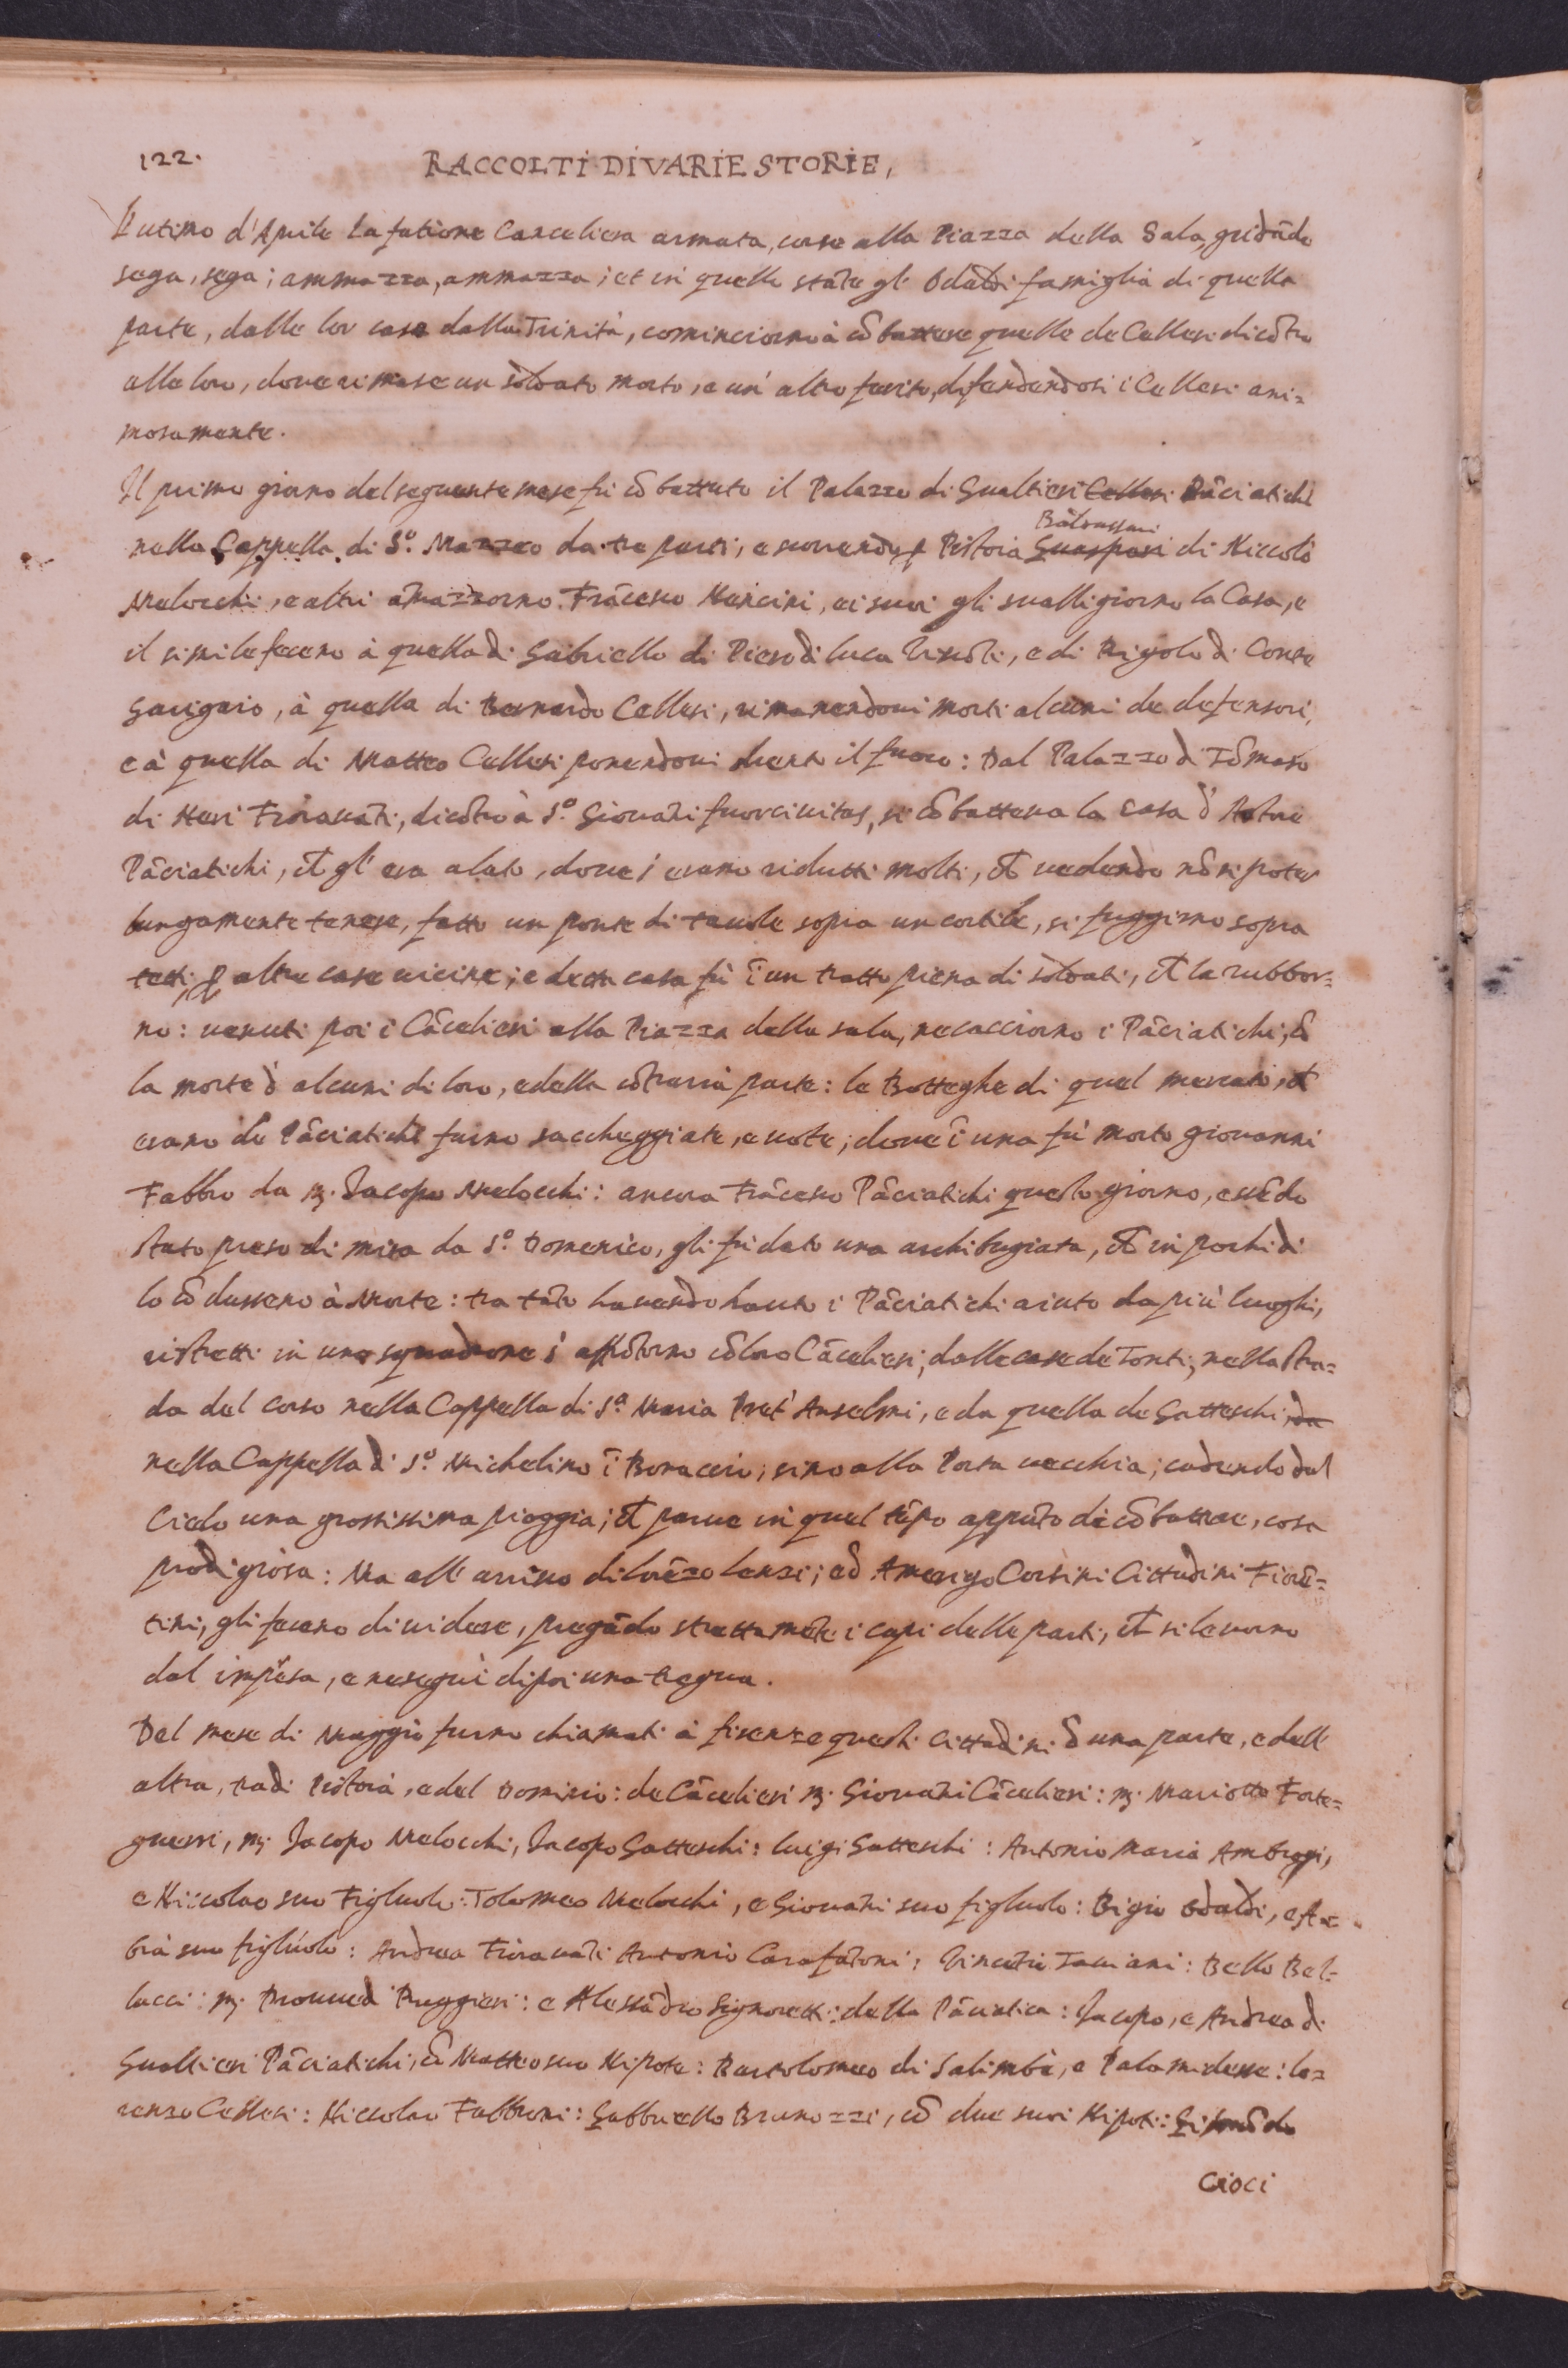 122.
RACCOLTI DI VARIE STORIE,
L'utimo d'Aprile la fatione Canceliera armata, corse alla Piazza della Sala, gridādo
sega, sega; ammazza, ammazza; et in quello stāte gl' Odaldi famiglia di quella
parte, dalle lor case dalla Trinità, cominciorno à cōbattere quelle de Cellesi dicōtro
alle loro, dove rimase un soldato morto, e un' altro ferito, difendendosi i Cellesi ani=
mosamente.
Il primo giorno del seguente mese fu cōbattuto il Palazzo di Gualtieri Cellesi Pāciatichi
Baldassarri
nella Cappella di S.º Mazzeo da tre parti, e scorrendo p Pistoia Guaspari di Niccolò
Melocchi, e altri amazzorno Frācesco Mencini, e i suoi gli svalligiorno la Casa, e
il simile fecero à quella di Gabriello di Piero di Luca Viscōti, e di Rigolo di Conte
Gavigaio, à quella di Bernardo Cellesi, rimanendovi morti alcuni de defensori,
e à quella di Matteo Cellesi ponendovi drento il fuoco: Dal Palazzo di Tōmaso
di Neri Fioravāti, dicōtro à S.º Giovāni fuorcivitas, si cōbatteva la casa d' Astore
Pāciatichi, et gl' era alato, dove s' erano ridutti molti, et vedendo nō si poter
lungamente tenere, fatto un ponte di tavole sopra un cortile, si fuggirno sopra
tetti p altre case vicine; e detta casa fù ī un tratto piena di soldati, et la rubbor=
no: venuti poi i Cācelieri alla Piazza della sala, ne cacciorno i Pāciatichi, cō
la morte d' alcuni di loro, e della cōtraria parte: le Botteghe di quel mercato, et
erano de Pāciatichi furno saccheggiate, e vote; dove ī una fù morto giovanni
Fabbro da M. Jacopo Melocchi: ancora Frācesco Pāciatichi questo giorno, essēdo
stato preso di mira da S.º Domenico, gli fu dato una archibugiata, et in pochi dì
lo cōdussero à Morte: tra tāto havendo havuto i Pāciatichi aiuto da più luoghi,
ristretti in uno squadrone s' affrōtorno cō loro Cācelieri, dalle case de Tonti, nella stra=
da del corso nella Cappella di S.ª Maria Pret' Anselmi, e da quella de Gatteschi, da
nella Cappella di S.º Michelino ī Bonaceio; sino alla Porta vecchia; cadendo dal
Cielo una grossissima pioggia; et parve in quel tēpo appūto di cōbattere, cosa
prodigiosa: Ma all' arrivo di Lorēzo Lenzi; ed Amerigo Corsini Cittadini Fiorē=
tini, gli fecero dividere, pregādo strettamēte i capi delle parti, et si levorno
dal impresa, e ne seguì dipoi una tregua.
Del mese di Maggio furno chiamati à firenze questi Cittadini d' una parte, e dell'
altra, tra di Pistoia, e del Dominio: de Cācelieri M. Giovāni Cācelieri: M. Mariotto Forte=
guerri, M. Jacopo Melocchi, Jacopo Gatteschi: Luigi Gatteschi: Antonio Maria Ambrogi,
e Niccolao suo Figluolo: Tolomeo Melocchi, e Giovāni suo figluolo: Bigio Odaldi, e
suo figluolo: Andrea Fioravāti Antonio Carafātoni: Vincētio Taviani: Bello Bel=
lucci: M. Ruggieri: e Alessādro Signoretti: della Pāciatica: Jacopo, e Andrea di
Gualtieri Pāciatichi, cō Matteo suo Nipote: Bartolomeo di Salimbē, e Palamidesse: Lo=
renzo Cellesi: Niccolao Fabbroni: Gabbriello Brunozzi, cō due suoi Nipoti:
Cioci